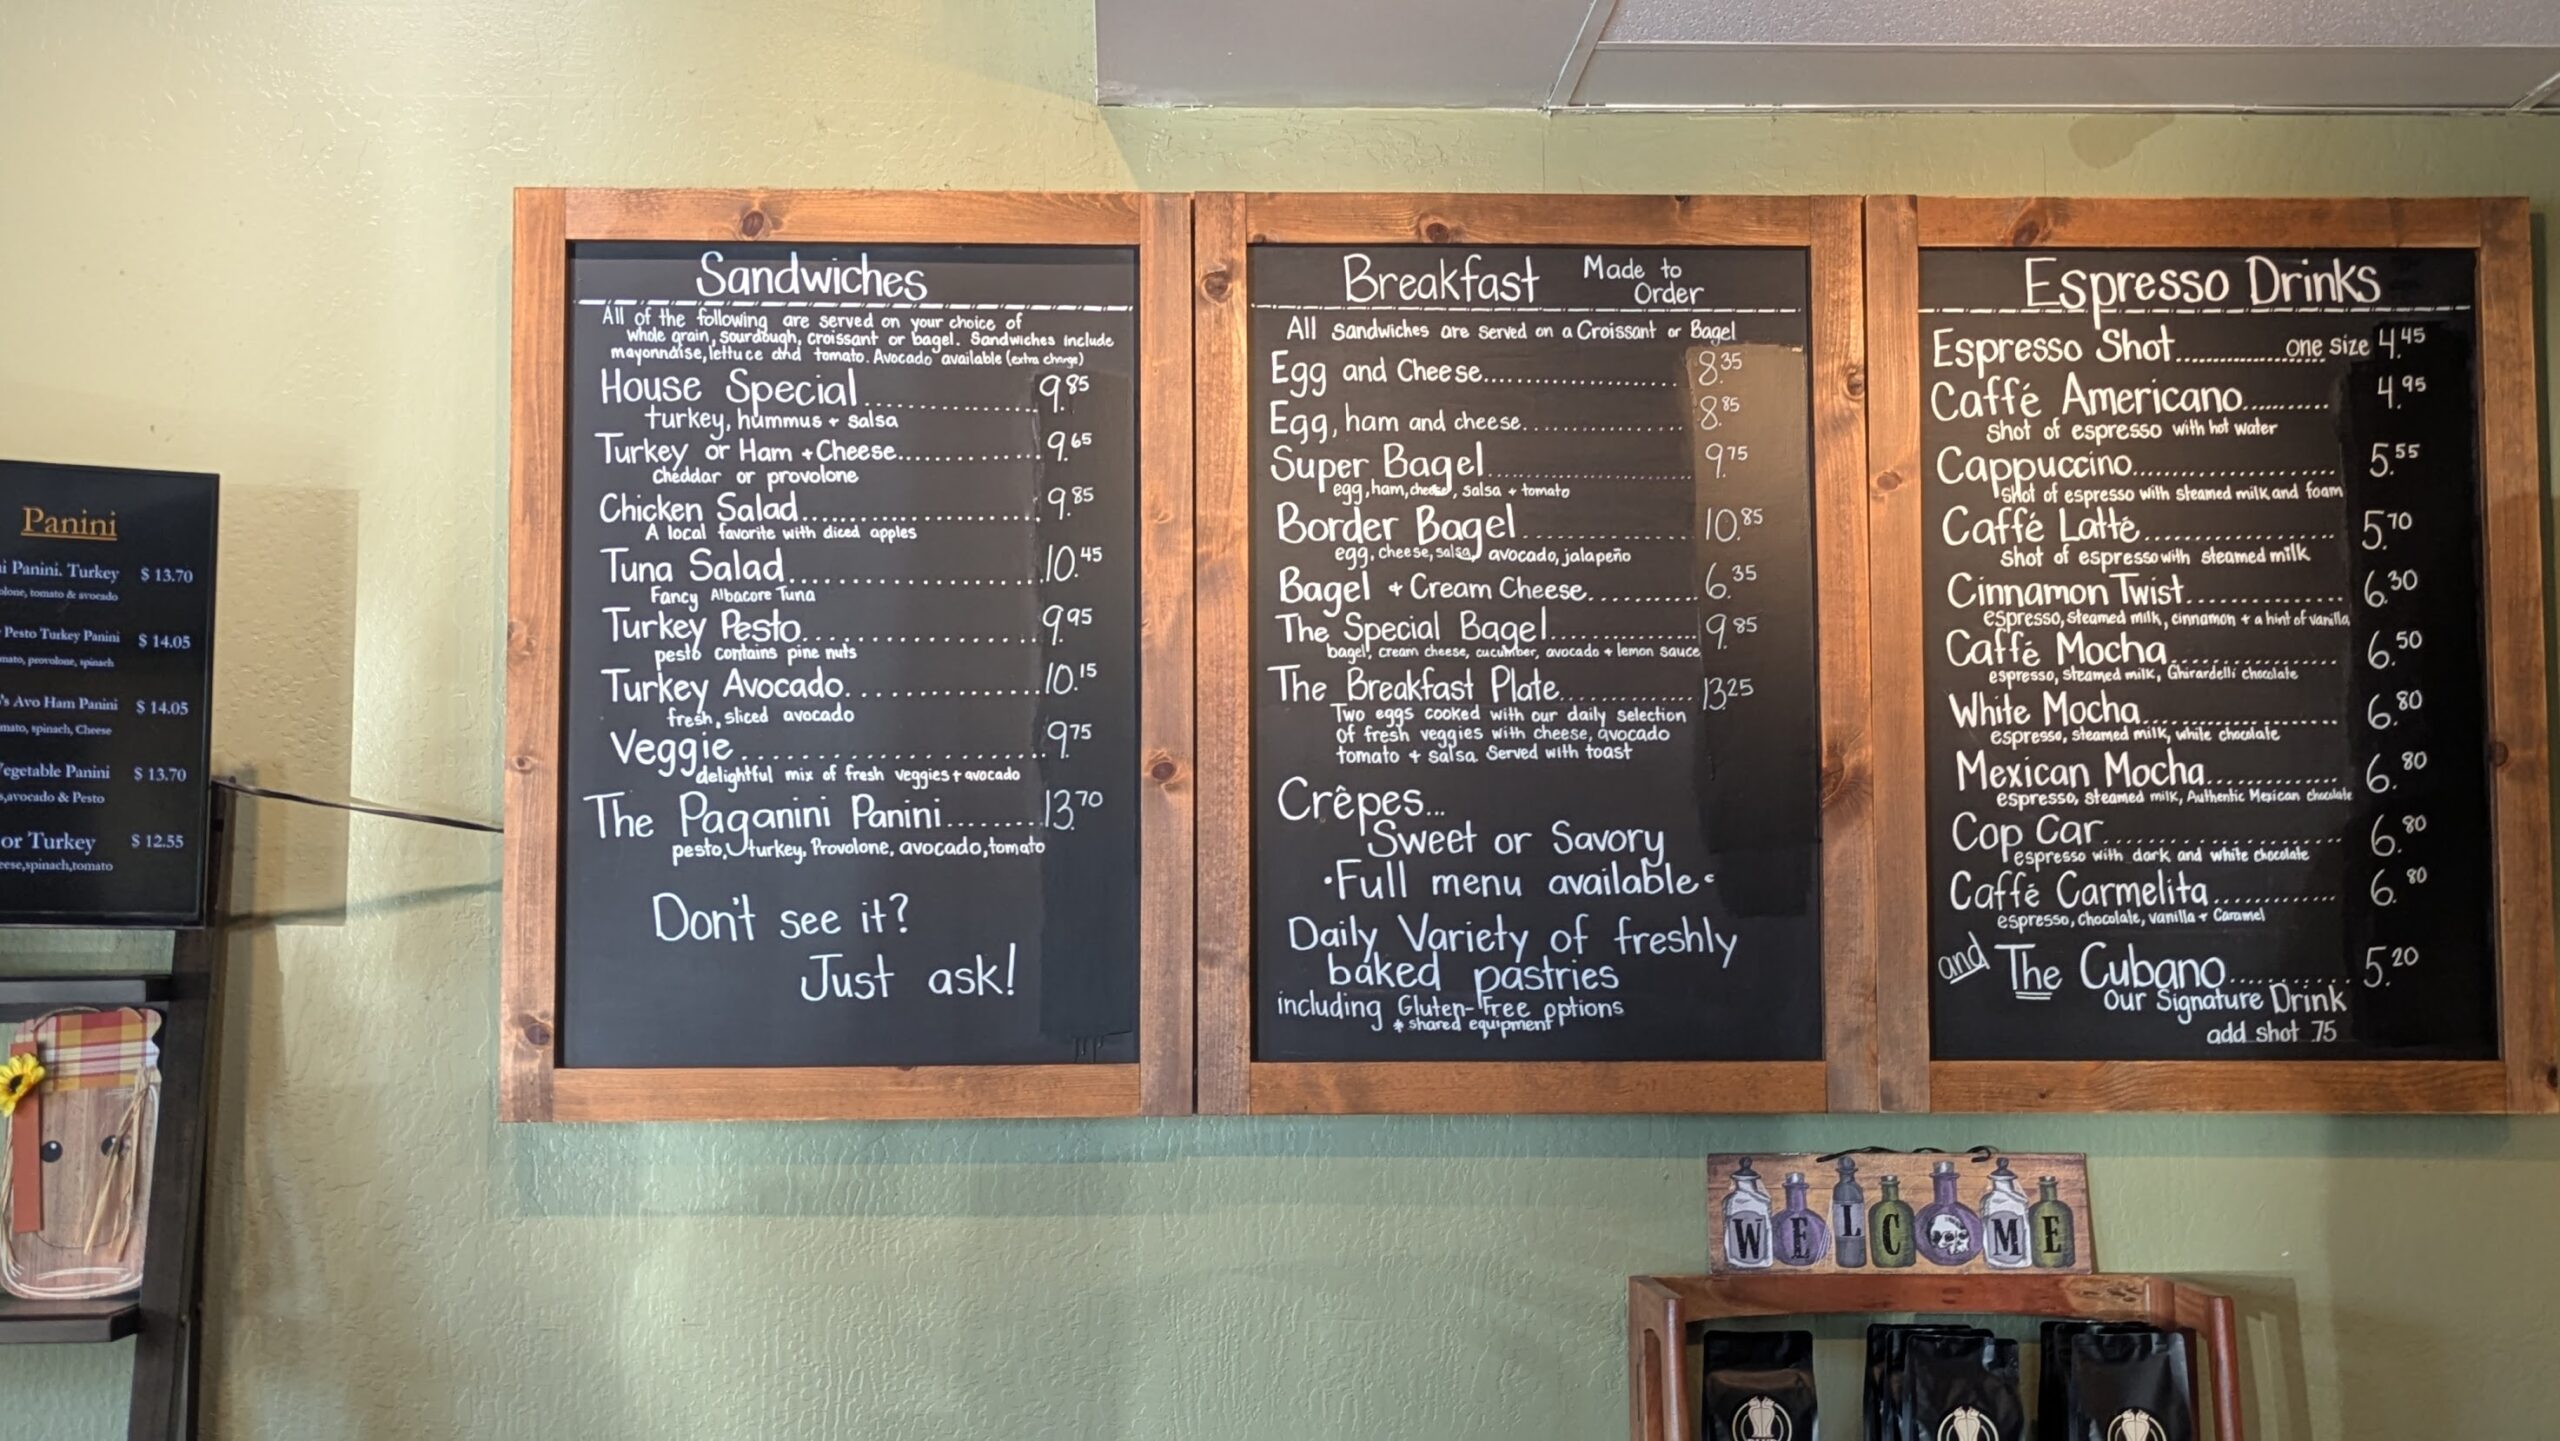 Panini
i Panini. Turkey $ 13.70
olone, tomato & avocado
Pesto Turkey Panini $ 14.05
mato, provolone, spinach
's Avo Ham Panini $ 14.05
mato, spinach, Cheese
egetable Panini $ 13.70
s,avocado & Pesto
or Turkey $ 12.55
eese,spinach,tomato
Sandwiches
All of the following are served on your choice of
whole grain, sourdough, croissant or bagel. Sandwiches include
mayonnaise, lettuce and tomato. Avocado available (extra charge)
House Special 9.85
turkey, hummus + salsa
Turkey or Ham + Cheese 9.65
cheddar or provolone
Chicken Salad 9.85
A local favorite with diced apples
Tuna Salad 10.45
Fancy Albacore Tuna
Turkey Pesto 9.95
pesto contains pine nuts
Turkey Avocado 10.15
fresh, sliced avocado
Veggie 9.75
delightful mix of fresh veggies + avocado
The Paganini Panini 13.70
pesto, turkey, Provolone, avocado, tomato
Don't see it?
Just ask!
Breakfast Made to Order
All sandwiches are served on a Croissant or Bagel
Egg and Cheese 8.35
Egg, ham and cheese 8.85
Super Bagel 9.75
egg, ham, cheese, salsa + tomato
Border Bagel 10.85
egg, cheese, salsa, avocado, jalapeño
Bagel + Cream Cheese 6.35
The Special Bagel 9.85
bagel, cream cheese, cucumber, avocado + lemon sauce
The Breakfast Plate 13.25
Two eggs cooked with our daily selection
of fresh veggies with cheese, avocado
tomato + salsa. Served with toast
Crêpes...
Sweet or Savory
• Full menu available •
Daily Variety of freshly
baked pastries
including Gluten-Free options
* shared equipment
Espresso Drinks
Espresso Shot one size 4.45
Caffé Americano 4.95
shot of espresso with hot water
Cappuccino 5.55
shot of espresso with steamed milk and foam
Caffé Latté 5.70
shot of espresso with steamed milk
Cinnamon Twist 6.30
espresso, steamed milk, cinnamon + a hint of vanilla
Caffé Mocha 6.50
espresso, steamed milk, Ghirardelli chocolate
White Mocha 6.80
espresso, steamed milk, white chocolate
Mexican Mocha 6.80
espresso, steamed milk, Authentic Mexican chocolate
Cop Car 6.80
espresso with dark and white chocolate
Caffé Carmelita 6.80
espresso, chocolate, vanilla + Caramel
and The Cubano 5.20
Our Signature Drink
add shot .75
WELCOME